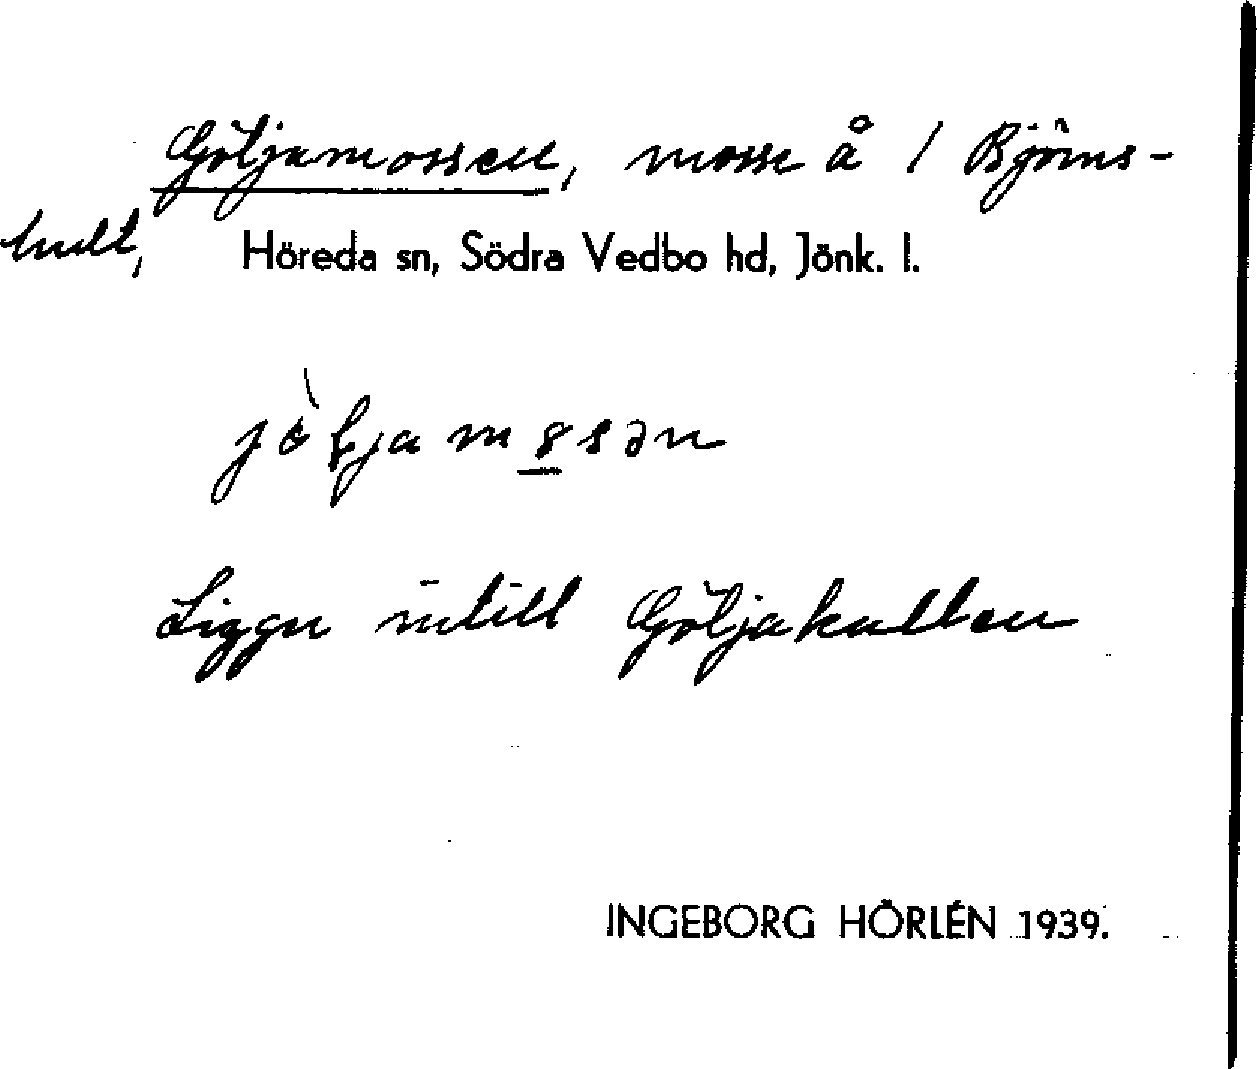 Göljamossen, mosse å / Björns-
hult,
Höreda sn, Södra Vedbo hd, Jönk. l.
Ligger intill Göljakullen
INGEBORG HÖRLÉN 1939.